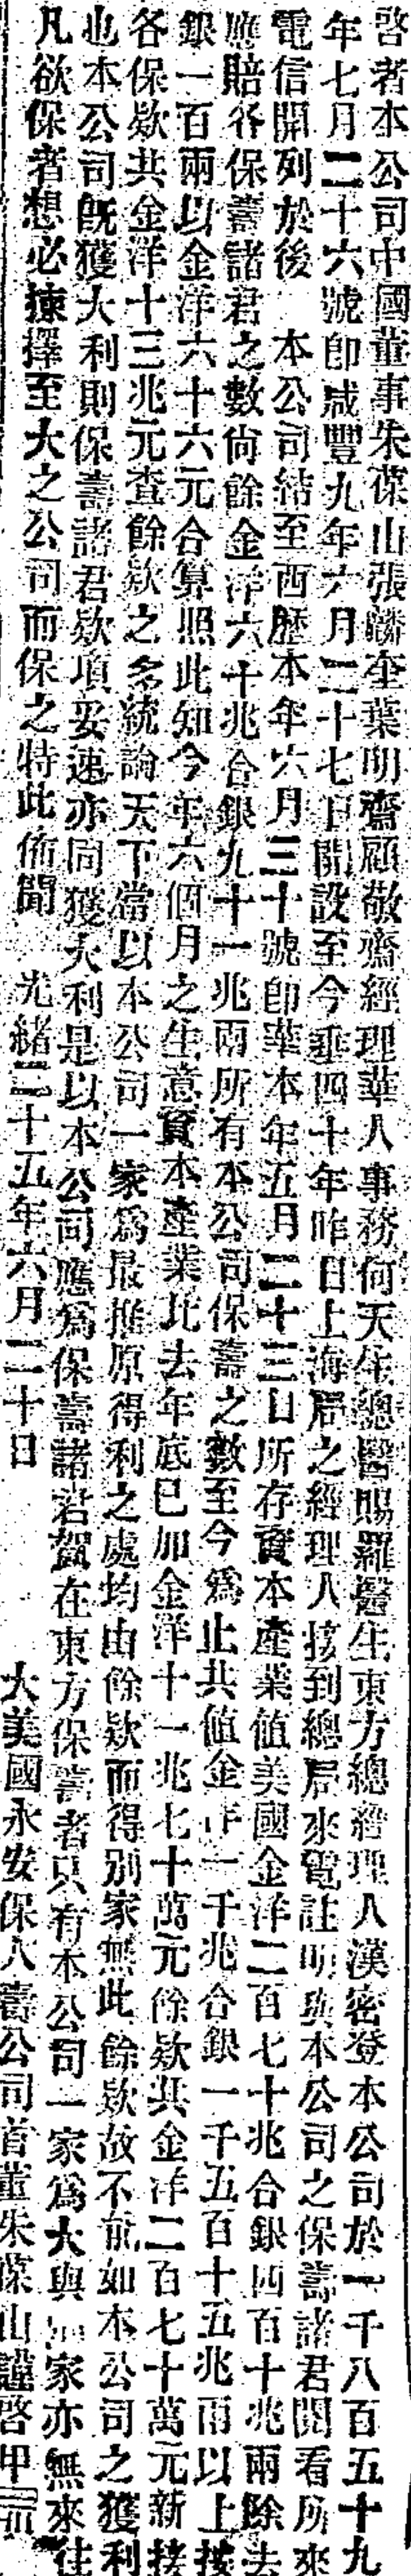 啓者本公司中國董事朱葆山張麟奎葉明齋顧敬齋經理華人事務何天生總醫賜羅醫生東方總經理人漢密登本公司於一千八百五十九
年七月二十六號卽咸豐九年六月二十七日開設至今垂四十年昨日上海局之經理人接到總局來電註明與本公司之保壽諸君閱看所來
電信開列於後 本公司結至西歷本年六月三十號卽華本年五月二十三日所存資本產業值美國金洋二百七十兆合銀四百十兆兩除去
應賠各保壽諸君之數尙餘金洋六十兆合銀九十一兆兩所有本公司保壽之數至今爲止共值金洋一千兆合銀一千五百十五兆兩以上按
銀一百兩以金洋六十六元合算照此知今年六個月之生意資本產業比去年底已加金洋十一兆七十萬元餘欵共金洋二百七十萬元新接
各保欵共金洋十三兆元查餘欵之多統論天下當以本公司一家爲最推原得利之處均由餘欵而得別家無此餘欵故不能如本公司之獲利
也本公司旣獲大利則保壽諸君欵項妥速亦同獲大利是以本公司應爲保壽諸君賀在東方保壽者只有本公司一家爲大與別家亦無來往
凡欲保者想必揀擇至大之公司而保之特此佈聞 光緒二十五年六月二十日 大美國永安保人壽公司首董朱葆山謹啓